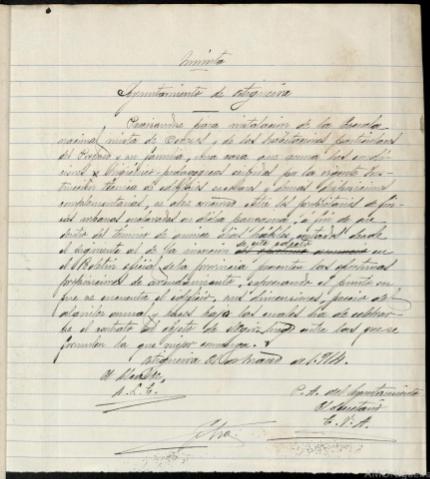 Minuta
Ayuntamiento de Ortigueira
Precisandose para instalación de la Escuela
nacional mixta de y de las habitaciones particulares
del y su familia, una casa que reuna las condi-
ciones higiénico-pedagógicas exigidas por la vigente Ins-
trucción técnica de edificios escolares y demas disposiciones
complementarias, se abre concurso entre los propietarios de fin-
cas urbanas en dicha parroquia, á fin de que
dentro del término de quince dias hábiles contados desde
el siguiente al de la inserción de este edicto en
el Boletin oficial de la provincia presenten las oportunas
proposiciones de arrendamiento, expresando el punto en
que se encuentra el edificio, sus dimensiones, precio del
alquiler anual y bases bajo las cuales ha de celebrar-
se el contrato al objeto de entre las que se
formulen la que mejor convenga.
Ortigueira de 1914.
El Alcalde,
P. A. del Ayuntamiento
El Secretario